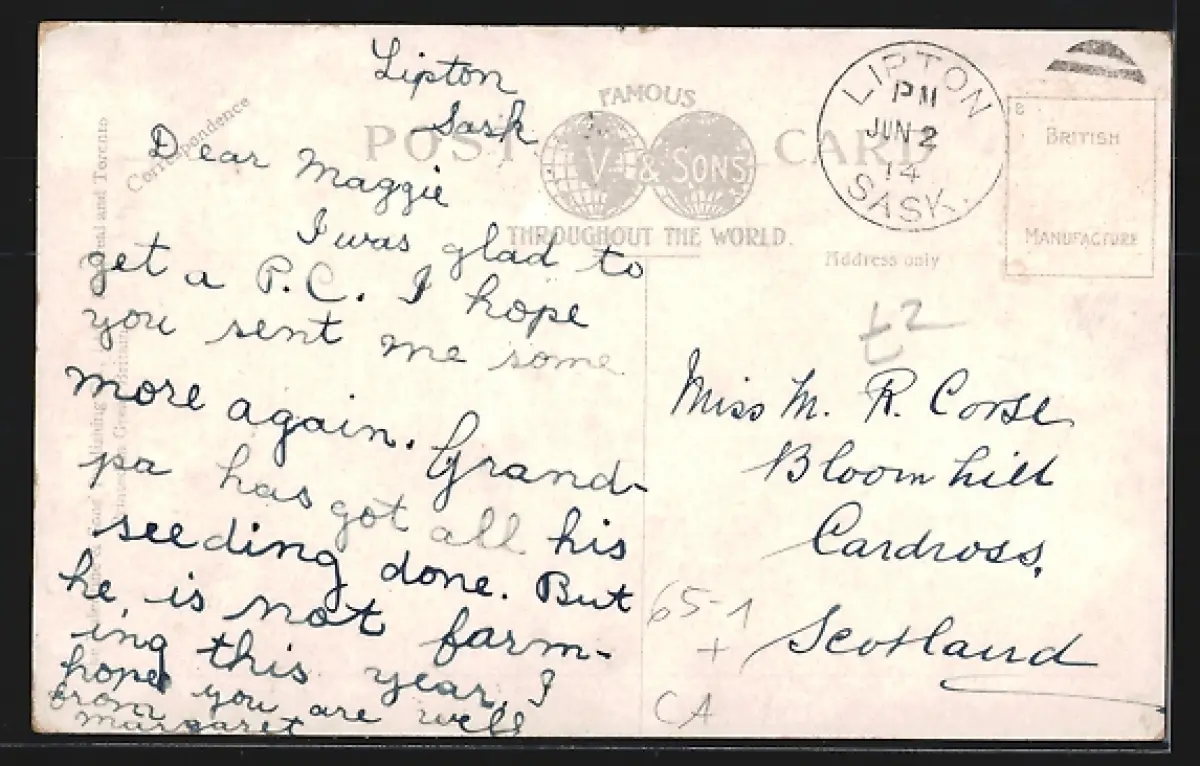 Lipton
Sask
Dear Maggie
I was glad to
get a P.C. I hope
you sent me some
more again. Grand-
pa has got all his
seeding done. But
he, is not farm-
ing this year, I
hope you are well
from
Margaret
Correspondence
POST CARD
FAMOUS
V & SONS
THROUGHOUT THE WORLD.
Address only
LIPTON
PM
JUN 2
14
SASK.
BRITISH
MANUFACTURE
Miss M. R. Corse
Bloomhill
Cardross,
Scotland
65-1
+
CA
real and Toronto